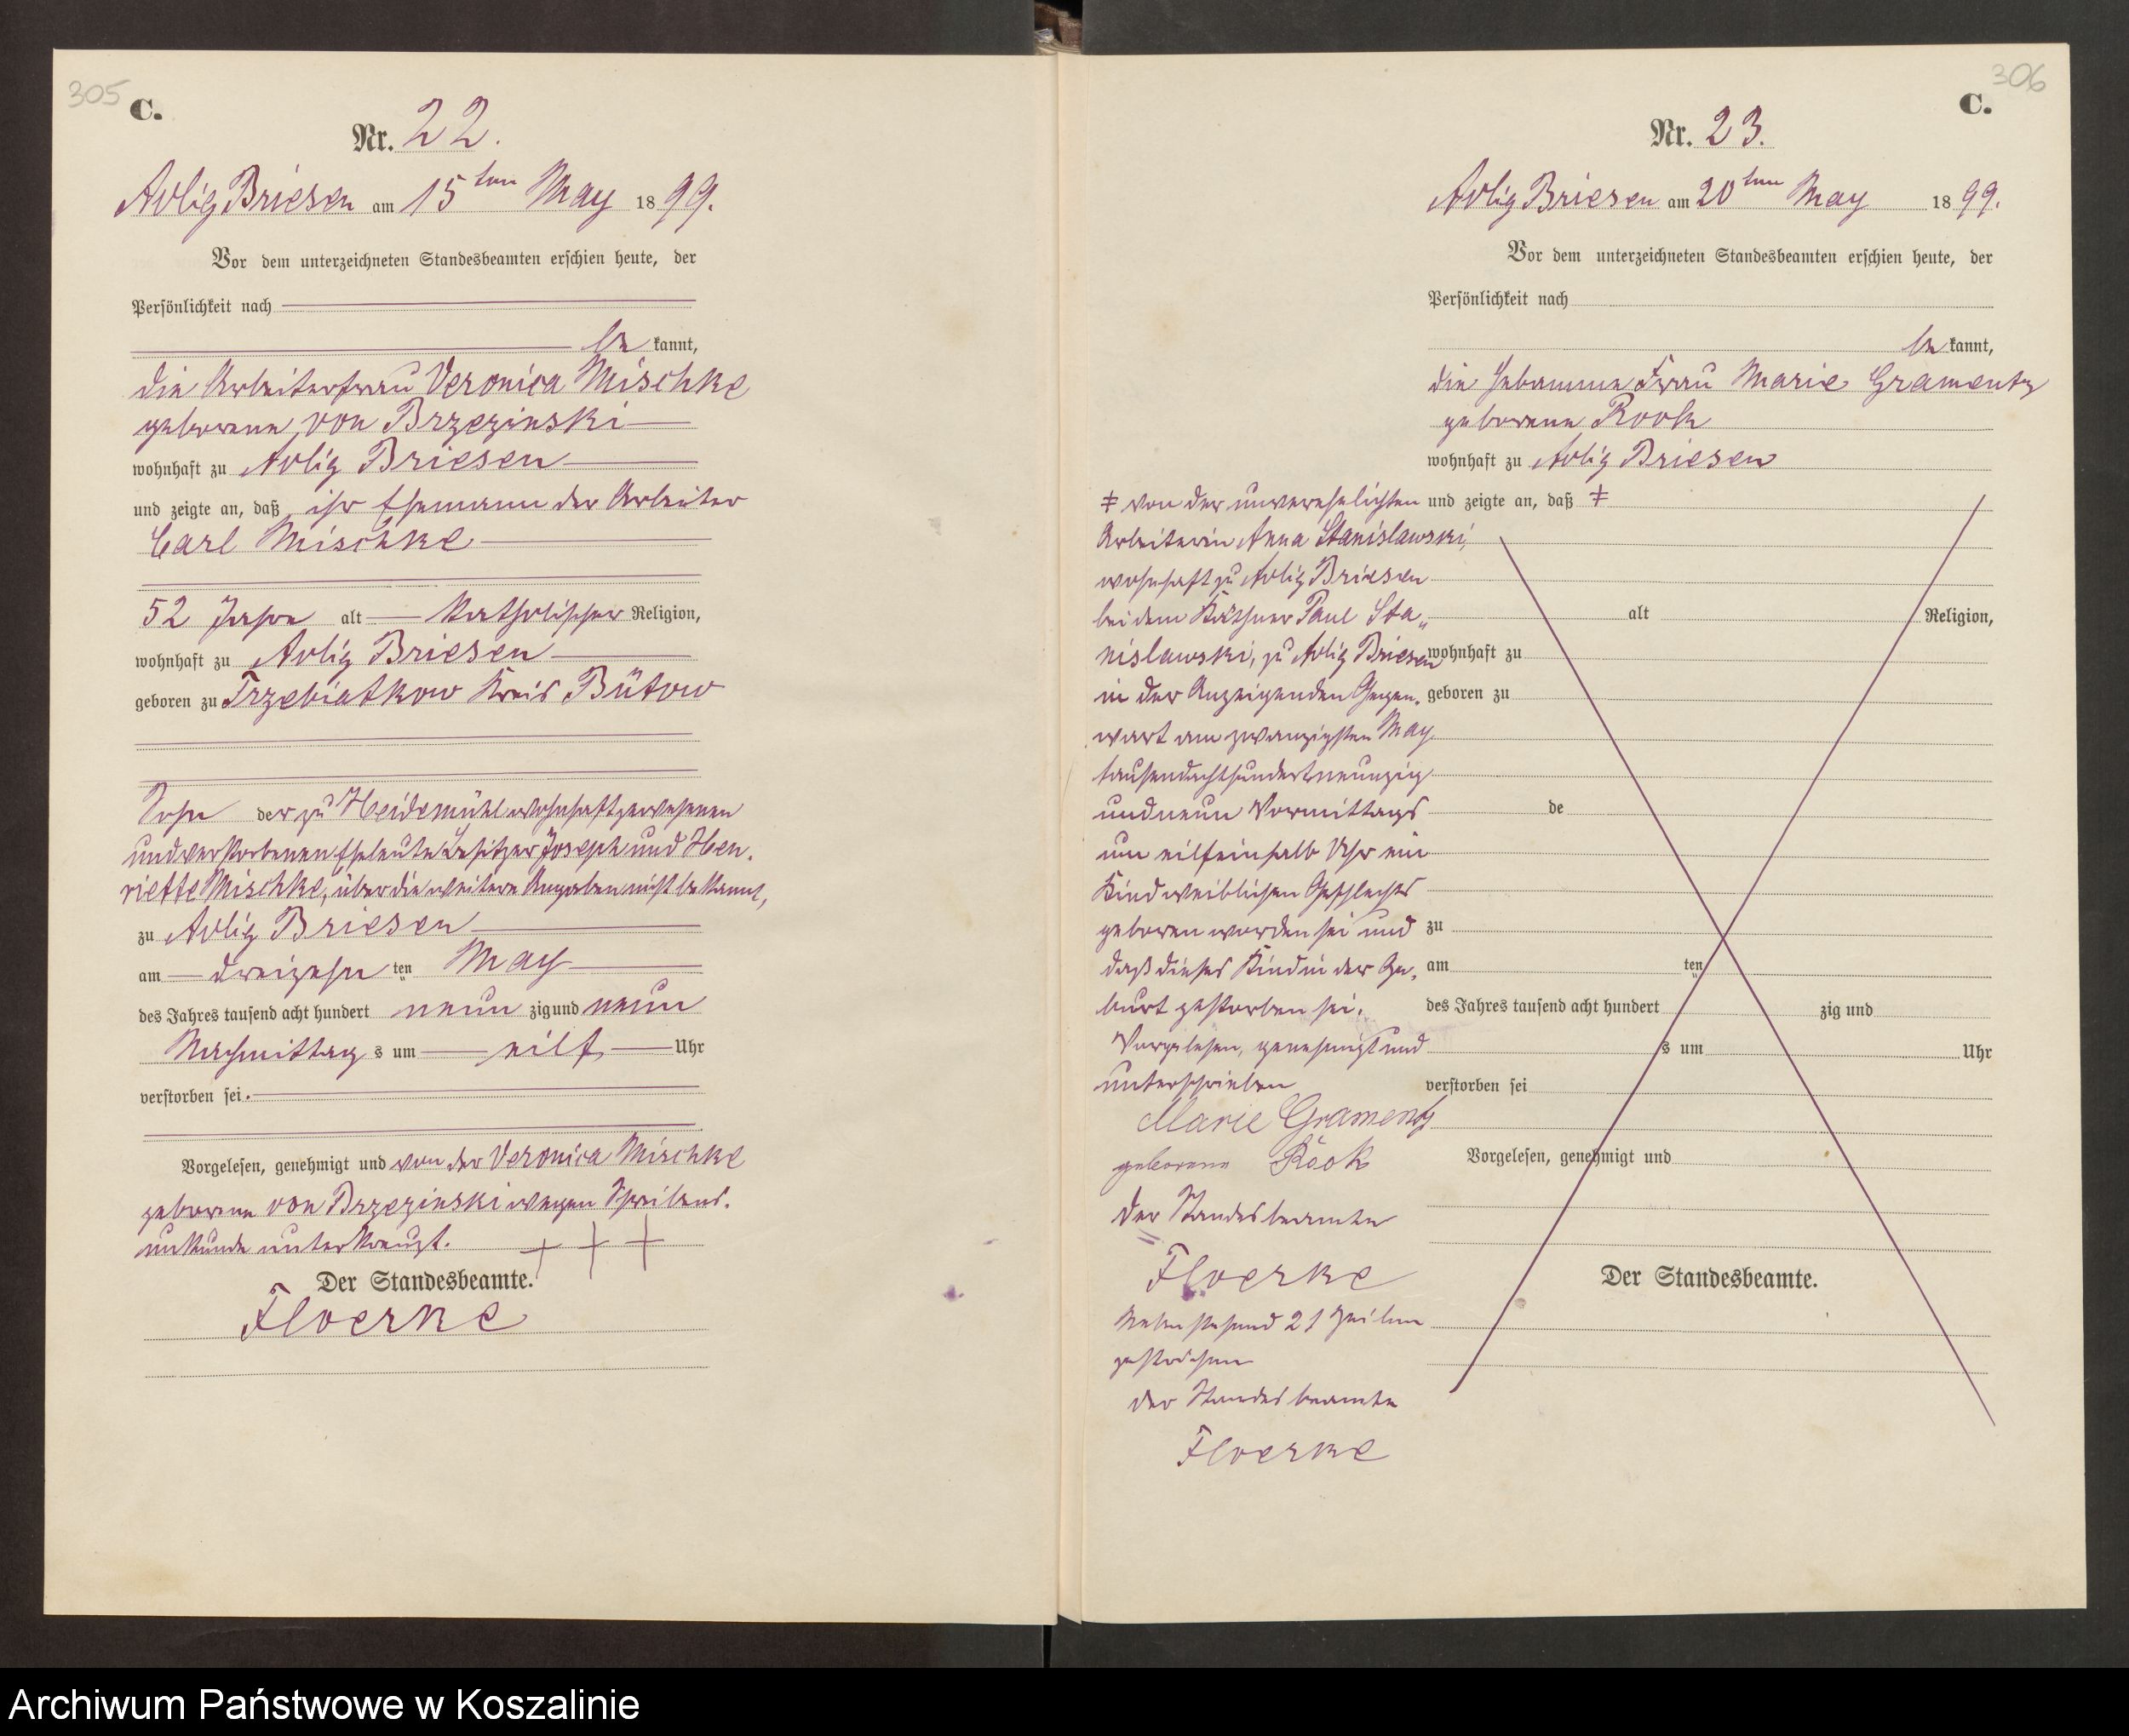 305
C.
Nr. 22.
Adlig Briesen am 15ten May 1899.
Vor dem unterzeichneten Standesbeamten erschien heute, der
Persönlichkeit nach
be kannt,
die Arbeiterfrau Veronica Mischke
geborene von Brzezinski
wohnhaft zu Adlig Briesen
und zeigte an, daß ihr Ehemann der Arbeiter
Carl Mischke
52 Jahre alt katholischer Religion,
wohnhaft zu Adlig Briesen
geboren zu Trzebiatkow Kreis Bütow
Sohn der zu Heidemühl wohnhaft gewesenen
und verstorbenen Eheleute Besitzer Joseph und Hen-
riette Mischke, über die weitere Angaben nicht bekannt,
zu Adlig Briesen
am dreizehn ten May
des Jahres tausend acht hundert neun zig und neun
Nachmittag s um eilf Uhr
verstorben sei.
Vorgelesen, genehmigt und von der Veronica Mischke
geborene von Brzezinski wegen Schreibens-
unkunde unterkreuzt. + + +
Der Standesbeamte.
Floerke
306
C.
Nr. 23.
Adlig Briesen am 20ten May 1899.
Vor dem unterzeichneten Standesbeamten erschien heute, der
Persönlichkeit nach
be kannt,
die Hebamme Frau Marie Gramentz
geborene Rook
wohnhaft zu Adlig Briesen
und zeigte an, daß ‡
alt Religion,
wohnhaft zu
geboren zu
de
zu
am ten
des Jahres tausend acht hundert zig und
s um Uhr
verstorben sei
Vorgelesen, genehmigt und
Der Standesbeamte.
‡ von der unverehelichten
Arbeiterin Anna Stanislawski,
wohnhaft zu Adlig Briesen
bei dem Käthner Paul Sta-
nislawski, zu Adlig Briesen
in der Anzeigenden Gegen-
wart am zwanzigsten May
tausendachthundertneunzig
und neun Vormittags
um eilfeinhalb Uhr ein
Kind weiblichen Geschlechts
geboren worden sei und
daß dieses Kind in der Ge-
burt gestorben sei.
Vorgelesen, genehmigt und
unterschrieben
Marie Gramentz
geborene Röok
Der Standesbeamte
Floerke
Nebenstehend 21 Zeilen
gestrichen
Der Standesbeamte
Floerke
Archiwum Państwowe w Koszalinie